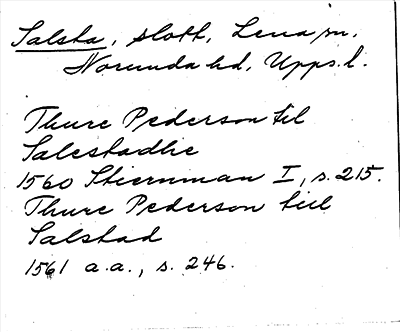 Salsta, slott, Lena sn,
Norunda hd, Upps.l.
Thure Pederson til
Salestadhe
1560 Stiernman I, s. 215.
Thure Pederson tiil
Salstad
1561 a.a., s. 246.